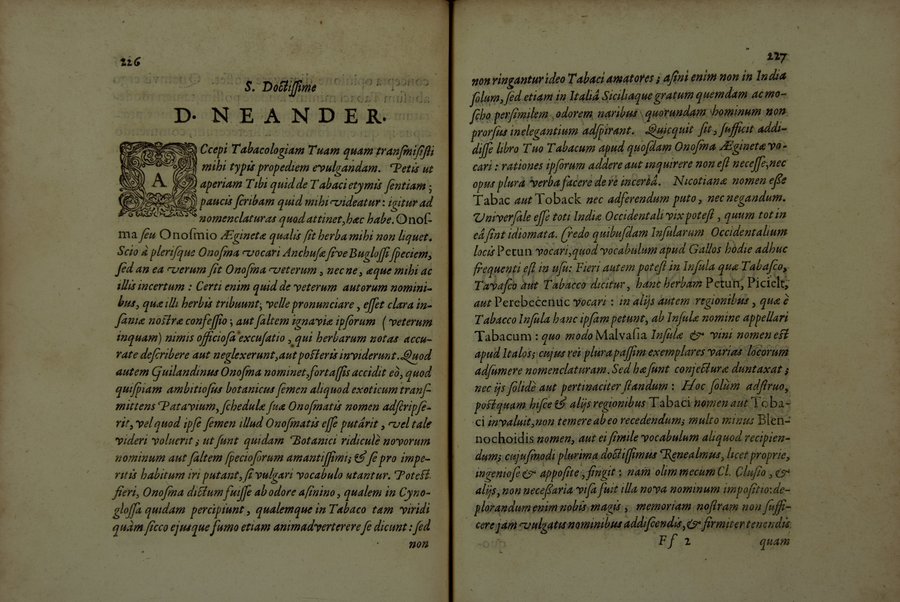 226
S. Doctissime
D. NEANDER.
ACcepi Tabacologiam Tuam quam transmisisti
mihi typis propediem evulgandam. Petis ut
aperiam Tibi quid de Tabaci etymis sentiam;
paucis scribam quid mihi videatur: igitur ad
nomenclaturas quod attinet, hæc habe. Onos-
ma seu Onosmio Æginetæ qualis sit herba mihi non liquet.
Scio à plerisque Onosma vocari Anchusæ sive Buglossi speciem,
sed an ea verum sit Onosma veterum, nec ne, æque mihi ac
illis incertum: Certi enim quid de veterum autorum nomini-
bus, quæ illi herbis tribuunt, velle pronunciare, esset clara in-
saniæ nostræ confessio; aut saltem ignaviæ ipsorum (veterum
inquam) nimis officiosa excusatio, qui herbarum notas accu-
rate describere aut neglexerunt, aut posteris inviderunt. Quod
autem Guilandinus Onosma nominet, fortassis accidit eò, quod
quispiam ambitiosus botanicus semen aliquod exoticum trans-
mittens Patavium, schedulæ suæ Onosmatis nomen adscripse-
rit, vel quod ipse semen illud Onosmatis esse putârit, vel tale
videri voluerit; ut sunt quidam Botanici ridiculè novorum
nominum aut saltem speciosorum amantissimi; & se pro impe-
ritis habitum iri putant, si vulgari vocabulo utantur. Potest
fieri, Onosma dictum fuisse ab odore asinino, qualem in Cyno-
glossa quidam percipiunt, qualemque in Tabaco tam viridi
quàm sicco ejusque fumo etiam animadverterere se dicunt: sed
non
227
non ringantur ideo Tabaci amatores; asini enim non in India
solum, sed etiam in Italiâ Siciliaque gratum quemdam ac mo-
scho persimilem odorem naribus quorundam hominum non
prorsus inelegantium adspirant. Quicquit sit, sufficit addi-
disse libro Tuo Tabacum apud quosdam Onosma Æginetæ vo-
cari: rationes ipsorum addere aut inquirere non est necesse, nec
opus plura verba facere de rè incertâ. Nicotianæ nomen esse
Tabac aut Toback nec adserendum puto, nec negandum.
Universale esse toti Indiæ Occidentali vix potest, quum tot in
eâ sint idiomata. Credo quibusdam Insularum Occidentalium
locis Petun vocari, quod vocabulum apud Gallos hodie adhuc
frequenti est in usu: Fieri autem potest in Insula quæ Tabasco,
Tavasco aut Tabacco dicitur, hanc herbam Petun, Picielt,
aut Perebecenuc vocari: in alijs autem regionibus, quæ è
Tabacco Insula hanc ipsam petunt, ab Insulæ nomine appellari
Tabacum: quo modo Malvasia Insulæ & vini nomen est
apud Italos; cujus rei plura passim exemplares varias locorum
adsumere nomenclaturam. Sed hæ sunt conjecturæ duntaxat;
nec ijs solidè aut pertinaciter standum: Hoc solùm adstruo,
postquam hisce & alijs regionibus Tabaci nomen aut Toba-
ci invaluit, non temere ab eo recedendum; multo minus Blen-
nochoidis nomen, aut ei simile vocabulum aliquod recipien-
dum; cujusmodi plurima doctissimus Renealmus, licet proprie,
ingeniose & apposite, fingit: nam olim mecum Cl. Clusio, &
alijs, non necessaria visa fuit illa nova nominum impositio: de-
plorandum enim nobis magis, memoriam nostram non suffi-
cere jam vulgatis nominibus addiscendis, & firmiter tenendis
Ff 2
quam